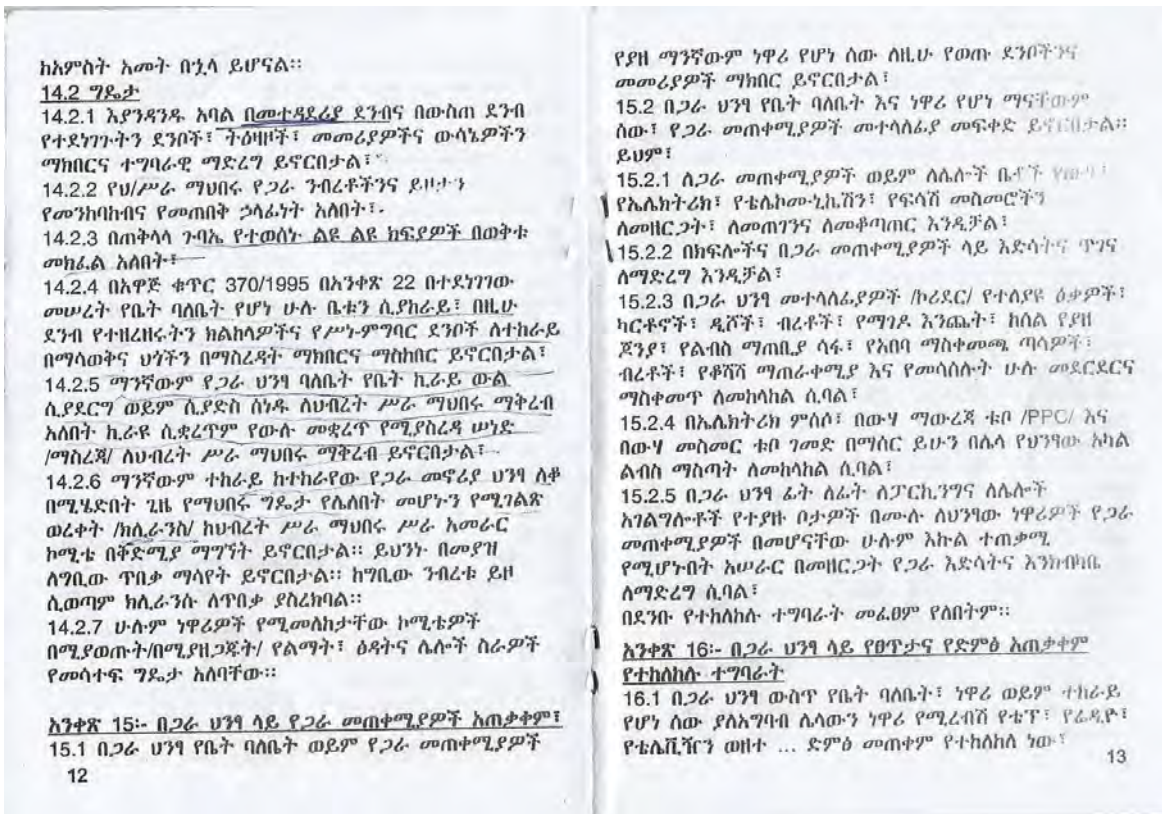 ከአምስት አመት በኋላ ይሆናል፡፡
14.2 ግዴታ
14.2.1 እያንዳንዱ አባል በመተዳደሪያ ደንብና በውስጠ ደንብ
የተደነገጉትን ደንቦች፣ ትዕዛዞች፣ መመሪያዎችና ውሳኔዎችን
ማክበርና ተግባራዊ ማድረግ ይኖርበታል፣
14.2.2 የህ/ሥራ ማህበሩ የጋራ ንብረቶችንና ይዞታን
የመንከባከብና የመጠበቅ ኃላፊነት አለበት፣
14.2.3 በጠቅላላ ጉባኤ የተወሰኑ ልዩ ልዩ ክፍያዎች በወቅቱ
መክፈል አለበት፣
14.2.4 በአዋጅ ቁጥር 370/1995 በአንቀጽ 22 በተደነገገው
መሠረት የቤት ባለቤት የሆነ ሁሉ ቤቱን ሲያከራይ፣ በዚሁ
ደንብ የተዘረዘሩትን ክልከላዎችና የሥነ-ምግባር ደንቦች ለተከራይ
በማሳወቅና ህጎችን በማስረዳት ማክበርና ማስከበር ይኖርበታል፣
14.2.5 ማንኛውም የጋራ ህንፃ ባለቤት የቤት ኪራይ ውል
ሲያደርግ ወይም ሲያድስ ሰነዱ ለህብረት ሥራ ማህበሩ ማቅረብ
አለበት ኪራዩ ሲቋረጥም የውሉ መቋረጥ የሚያስረዳ ሠነድ
/ማስረጃ/ ለህብረት ሥራ ማህበሩ ማቅረብ ይኖርበታል፣
14.2.6 ማንኛውም ተከራይ ከተከራየው የጋራ መኖሪያ ህንፃ ለቆ
በሚሄድበት ጊዜ የማህበሩ ግዴታ የሌለበት መሆኑን የሚገልጽ
ወረቀት /ክሊራንስ/ ከህብረት ሥራ ማህበሩ ሥራ አመራር
ኮሚቴ በቅድሚያ ማግኘት ይኖርበታል፡፡ ይህንኑ በመያዝ
ለግቢው ጥበቃ ማሳየት ይኖርበታል፡፡ ከግቢው ንብረቱ ይዞ
ሲወጣም ክሊራንሱ ለጥበቃ ያስረክባል፡፡
14.2.7 ሁሉም ነዋሪዎች የሚመለከታቸው ኮሚቴዎች
በሚያወጡት/በሚያዘጋጁት/ የልማት፣ ፅዳትና ሌሎች ስራዎች
የመሳተፍ ግዴታ አለባቸው፡፡
አንቀጽ 15፡- በጋራ ህንፃ ላይ የጋራ መጠቀሚያዎች አጠቃቀም፣
15.1 በጋራ ህንፃ የቤት ባለቤት ወይም የጋራ መጠቀሚያዎች
12
የያዘ ማንኛውም ነዋሪ የሆነ ሰው ለዚሁ የወጡ ደንቦችንና
መመሪያዎች ማክበር ይኖርበታል፣
15.2 በጋራ ህንፃ የቤት ባለቤት እና ነዋሪ የሆነ ማናቸውም
ሰው፣ የጋራ መጠቀሚያዎች መተላለፊያ መፍቀድ ይኖርበታል፡፡
ይህም፣
15.2.1 ለጋራ መጠቀሚያዎች ወይም ለሌሎች ቤቶች
የኤሌክትሪክ፣ የቴሌኮሙኒኬሽን፣ የፍሳሽ መስመሮችን
ለመዘርጋት፣ ለመጠገንና ለመቆጣጠር እንዲቻል፣
15.2.2 በክፍሎችና በጋራ መጠቀሚያዎች ላይ እድሳትና ጥገና
ለማድረግ እንዲቻል፣
15.2.3 በጋራ ህንፃ መተላለፊያዎች /ኮሪደር/ የተለያዩ ዕቃዎች፣
ካርቶኖች፣ ዲሾች፣ ብረቶች፣ የማገዶ እንጨት፣ ከሰል የያዘ
ጆንያ፣ የልብስ ማጠቢያ ሳፋ፣ የአበባ ማስቀመጫ ጣሳዎች፣
ብረቶች፣ የቆሻሻ ማጠራቀሚያ እና የመሳሰሉት ሁሉ መደርደርና
ማስቀመጥ ለመከላከል ሲባል፣
15.2.4 በኤሌክትሪክ ምሰሶ፣ በውሃ ማውረጃ ቱቦ /PPC/ እና
በውሃ መስመር ቱቦ ገመድ በማሰር ይሁን በሌላ የህንፃው አካል
ልብስ ማስጣት ለመከላከል ሲባል፣
15.2.5 በጋራ ህንፃ ፊት ለፊት ለፓርኪንግና ለሌሎች
አገልግሎቶች የተያዙ ቦታዎች በሙሉ ለህንፃው ነዋሪዎች የጋራ
መጠቀሚያዎች በመሆናቸው ሁሉም እኩል ተጠቃሚ
የሚሆኑበት አሠራር በመዘርጋት የጋራ እድሳትና እንክብካቤ
ለማድረግ ሲባል፣
በደንቡ የተከለከሉ ተግባራት መፈፀም የለበትም፡፡
አንቀጽ 16፡- በጋራ ህንፃ ላይ የፀጥታና የድምፅ አጠቃቀም
የተከለከሉ ተግባራት
16.1 በጋራ ህንፃ ውስጥ የቤት ባለቤት፣ ነዋሪ ወይም ተከራይ
የሆነ ሰው ያለአግባብ ሌላውን ነዋሪ የሚረብሽ የቴፕ፣ የሬዲዮ፣
የቴሌቪዥን ወዘተ ... ድምፅ መጠቀም የተከለከለ ነው፣
13